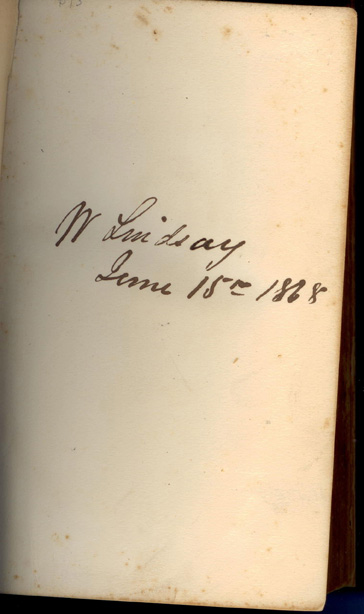 W Lindsay
June 15th 1868